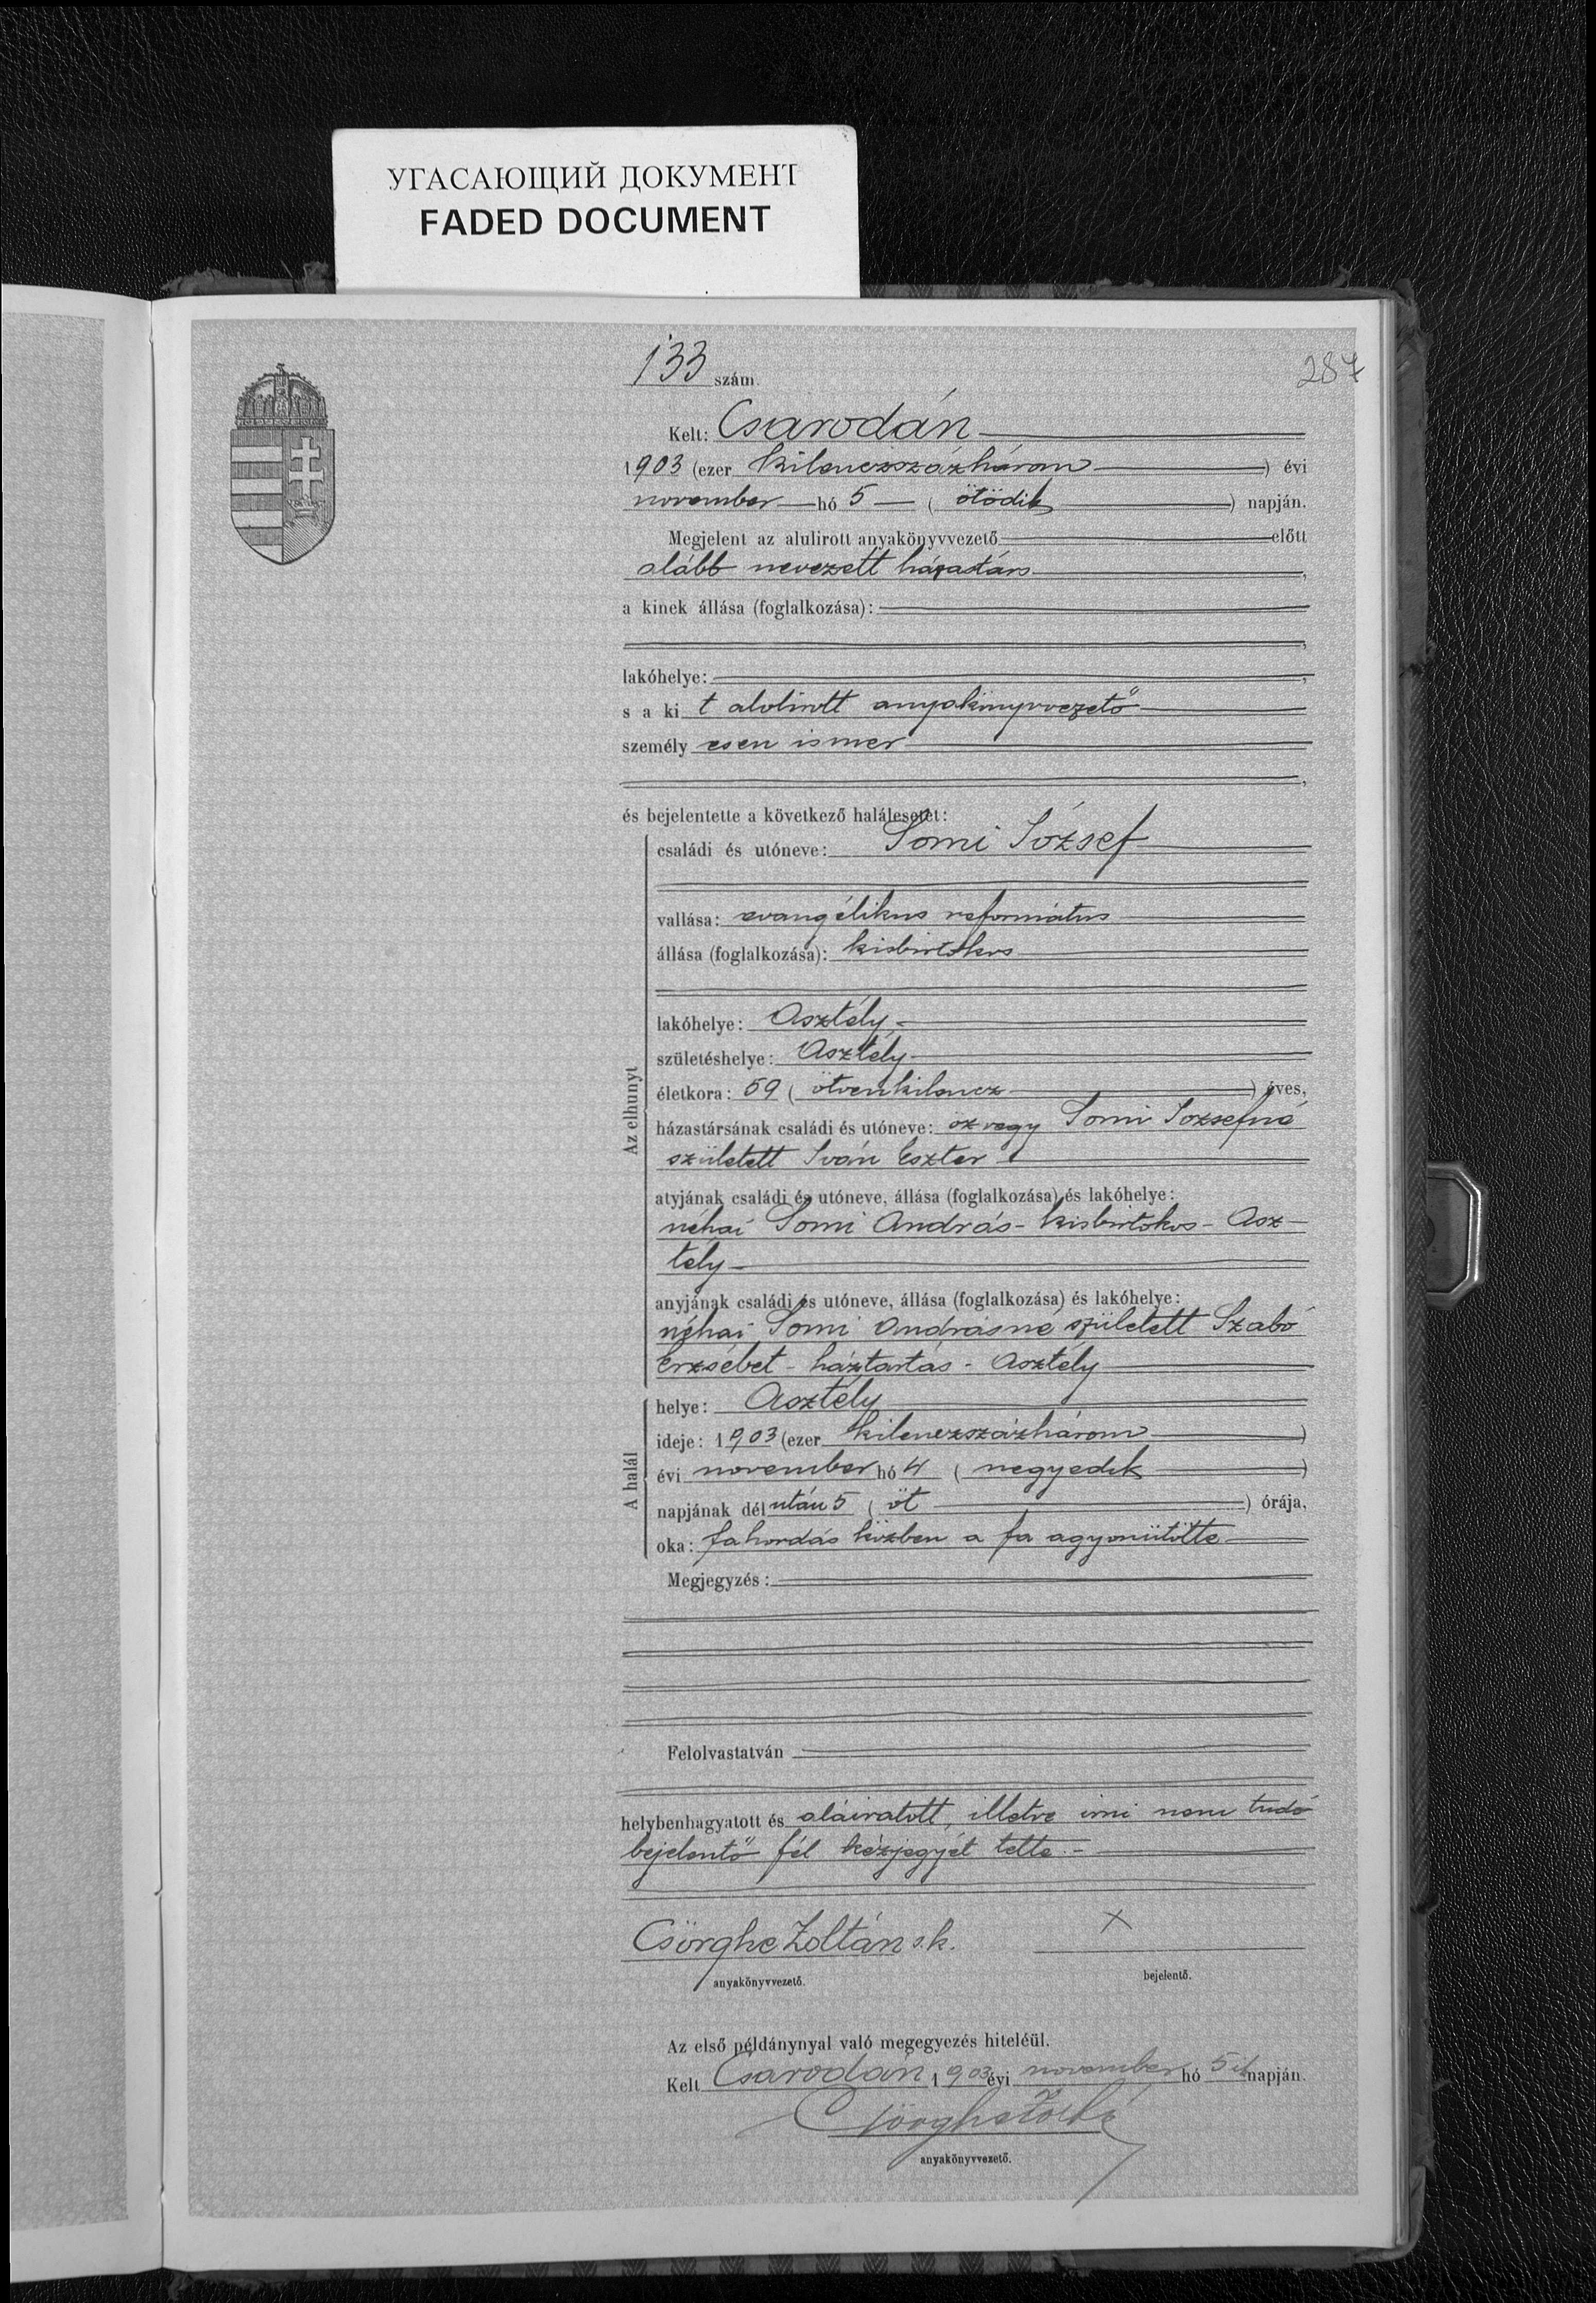 УГАСАЮЩИЙ ДОКУМЕНТ
FADED DOCUMENT
287
133 szám.
Kelt: Csarodán
1903 (ezer kilenczszázhárom) évi
november hó 5 (ötödik) napján.
Megjelent az alulirott anyakönyvvezető előtt
alább nevezett házastárs,
a kinek állása (foglalkozása):
,
lakóhelye: ,
s a ki t alolirott anyakönyvvezető
személy esen ismer
,
és bejelentette a következő halálesetet:
Az elhunyt
családi és utóneve: Somi József
vallása: evangélikus református
állása (foglalkozása): kisbirtokos
lakóhelye: Asztély
születéshelye: Asztély
életkora: 59 (ötvenkilencz) éves,
házastársának családi és utóneve: özvegy Somi Józsefné
született Iván Eszter
atyjának családi és utóneve, állása (foglalkozása) és lakóhelye:
néhai Somi András - kisbirtokos - Asz-
tély
anyjának családi és utóneve, állása (foglalkozása) és lakóhelye:
néhai Somi Andrásné született Szabó
Erzsébet - háztartás - Asztély
A halál
helye: Asztély
ideje: 1903 (ezer kilenczszázhárom)
évi november hó 4 (negyedik)
napjának dél után 5 (öt) órája,
oka: fahordás közben a fa agyonütötte
Megjegyzés:
Felolvastatván
helybenhagyatott és aláiratott, illetve irni nem tudó
bejelentő fél kézjegyét tette.-
Csörghe Zoltán s.k. X
anyakönyvvezető. bejelentő.
Az első példánynyal való megegyezés hiteléül.
Kelt Csarodán 1903 évi november hó 5 ik napján.
Csörghe Zoltán
anyakönyvvezető.